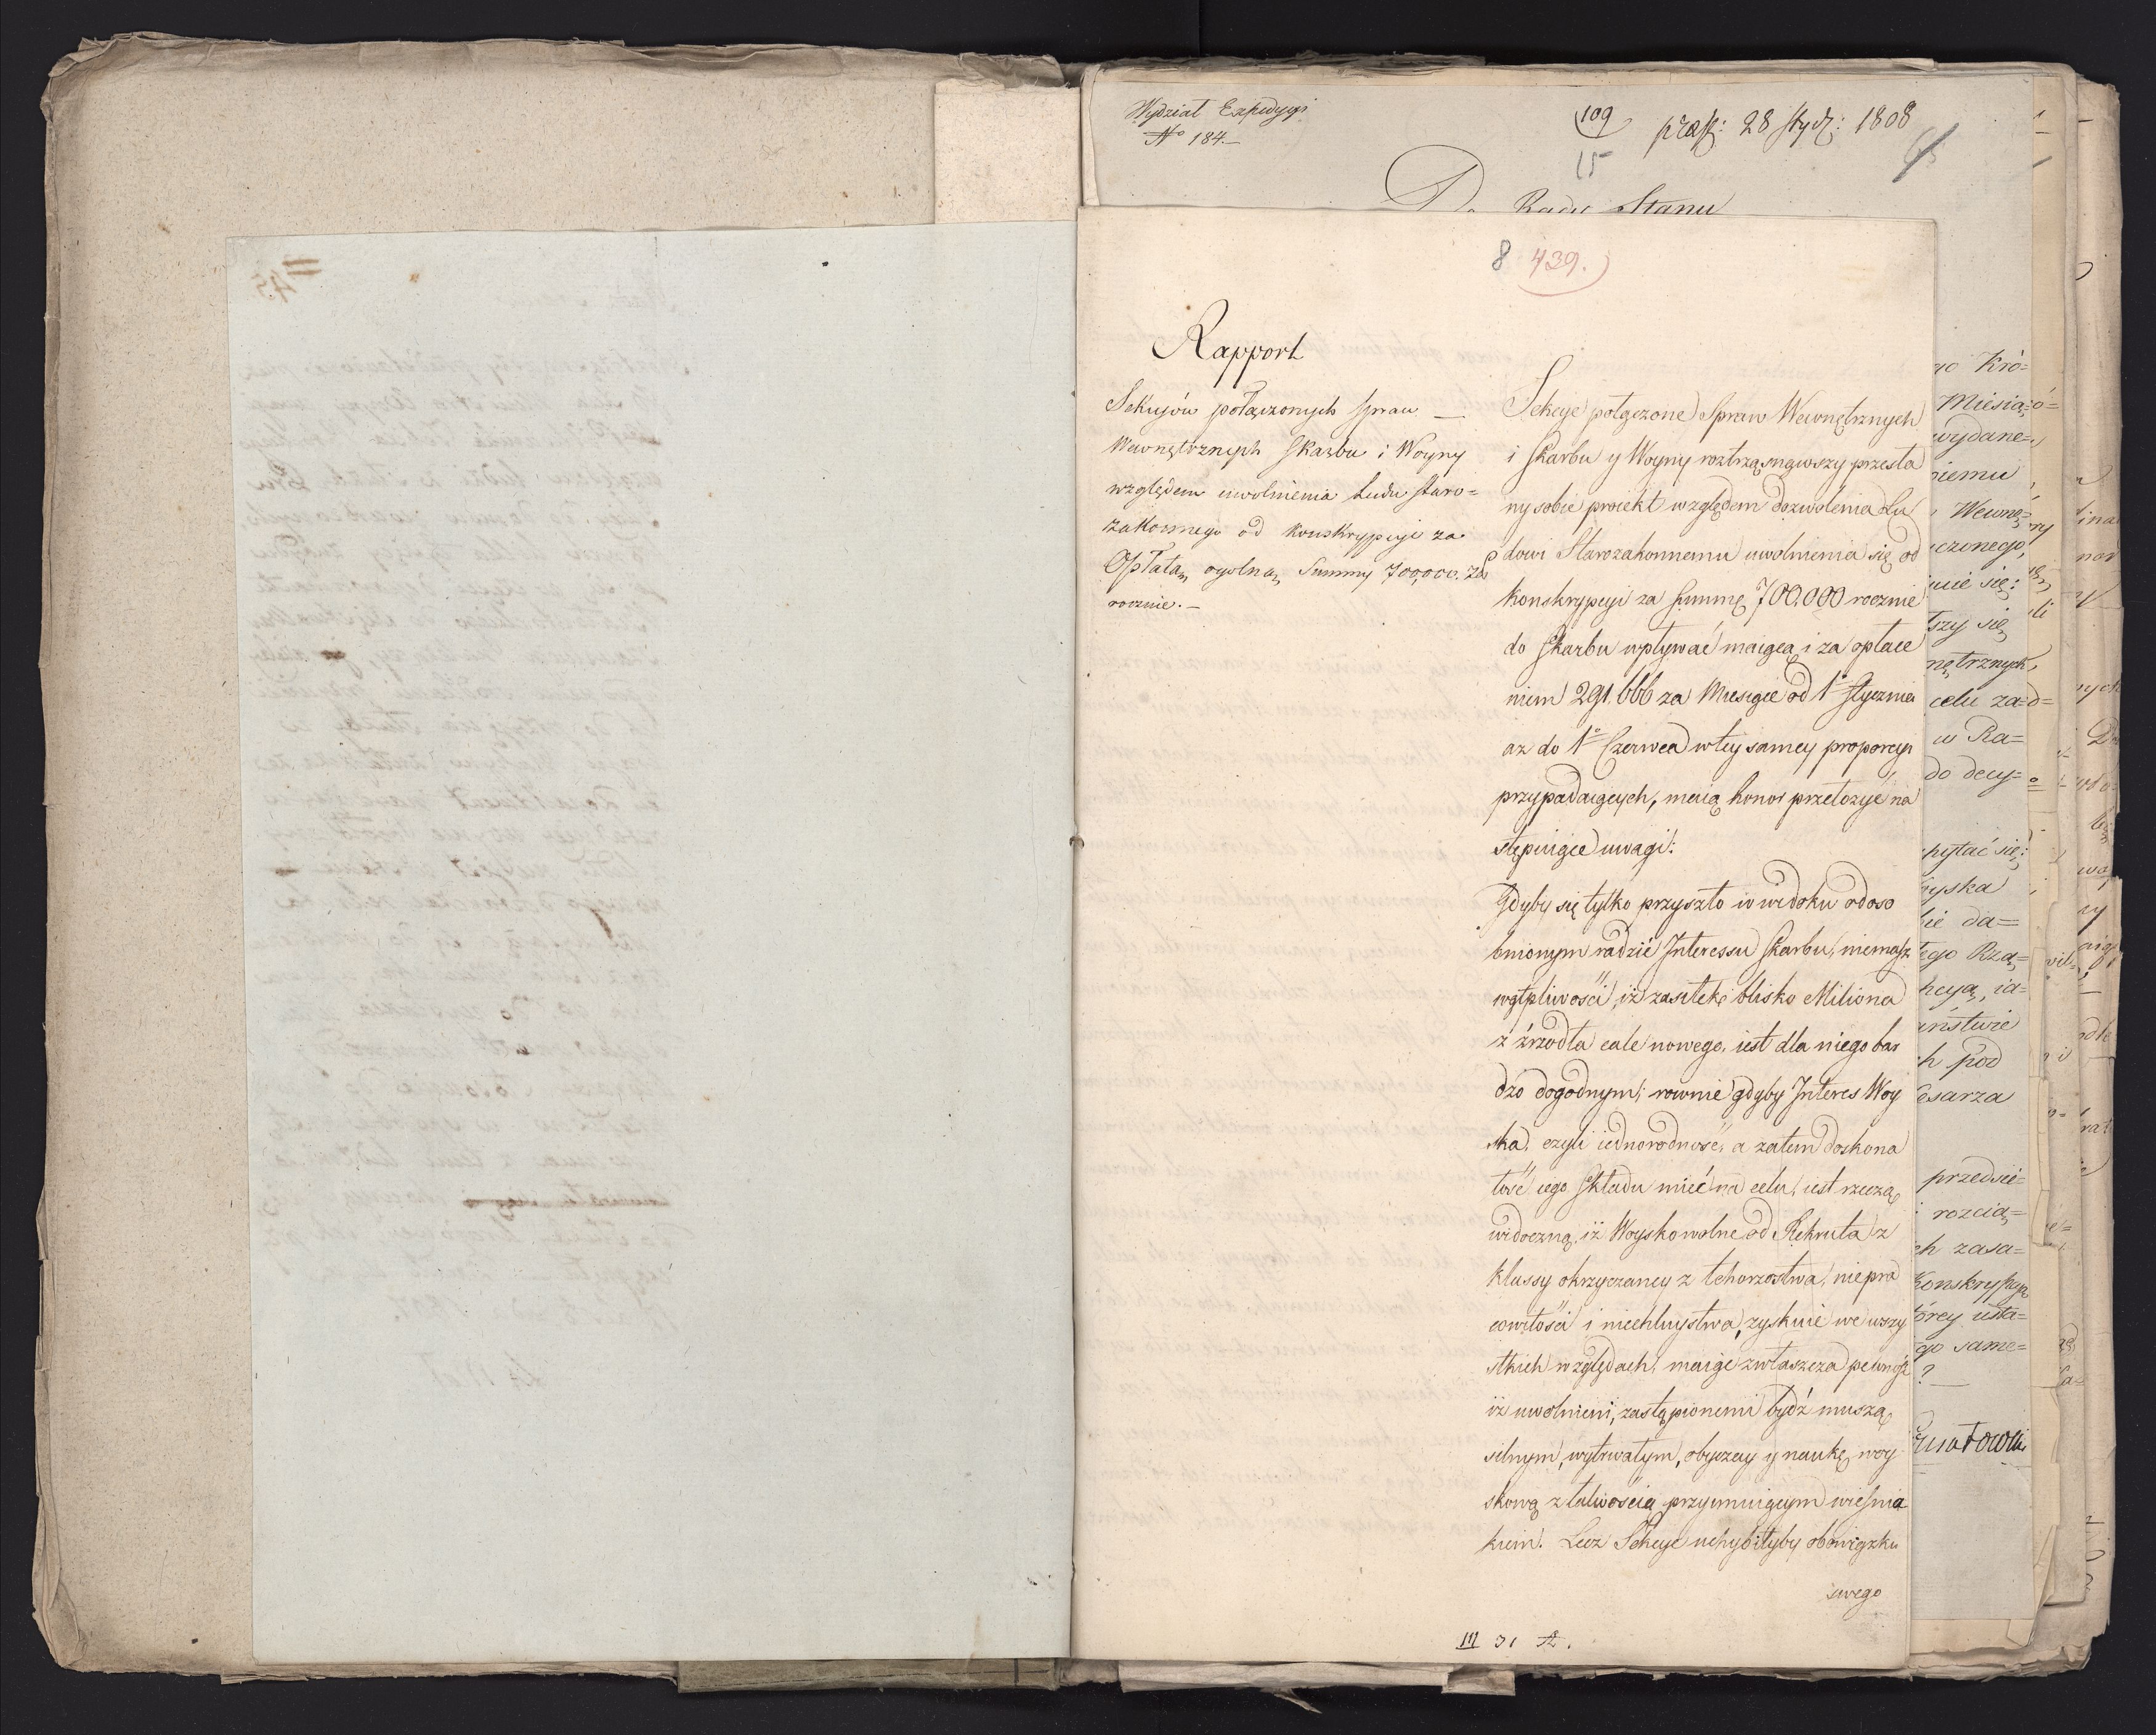 Wydział Expedycyi
No 184.—
109
15
præst: 28 stycz: 1808
Do Rady Stanu
8 439.
Rapport
Sekcyów połączonych spraw —
Wewnętrznych Skarbu i Woyny
względem uwolnienia Ludu staro=
zakonnego od konskrypcyi za
Opłatą ogolną Summy 700,000. Zł
rocznie.—
Sekcye połączone Spraw Wewnętrznych
i Skarbu y Woyny roztrząsnąwszy przesła
ny sobie proiekt względem dozwolenia Lu
dowi Starozakonnemu uwolnienia się od
konskrypcyi za summę 700.000 rocznie
do Skarbu wpływać maiącą i za opłace
niem 291.666 za Miesiące od 1o Stycznia
az do 1o Czerwca w tey samey proporcyi
przypadaiących, maią honor przełozyć na
stępuiące uwagi:
Gdyby się tylko przyszło w widoku odoso
bnionym radzić Interessu Skarbu, niemasz
wątpliwości, iż zasiłek blisko Miliona
z źrzodła cale nowego, iest dla niego bar
dzo dogodnym; rownie gdyby Interes Woy
ska, czyli iednorodność, a zatem doskona
łość iego Składu mieć na celu, iest rzeczą
widoczną, iż Woysko wolne od Rekruta z
klassy okrzyczaney z tchorzostwa, niepra
cowitości i niechluystwa, zyskuie we wszy
stkich względach, maiąc zwłaszcza pewność
iż uwolnieni, zastąpionemi bydź muszą
silnym, wytrwałym, obyczay y naukę woy
skową z łatwością przyimuiącym wieśnia
kiem. Lecz Sekcye uchybiłyby obowiązku
swego
III 31 A.
=45
go Kró=
Miesią=
wydane=
niemu
Wewnę=
czonego,
uie się:
szy się
nętrznych,
celu za=
w Ra=
do decy=
pytać się:
zyska
bie da=
tego Rzą=
hcyą, ia=
aństwie
h pod
esarza
przedsię=
rozcią=
ch zasa=
konskrypcyi
órey usta=
ego same=
?